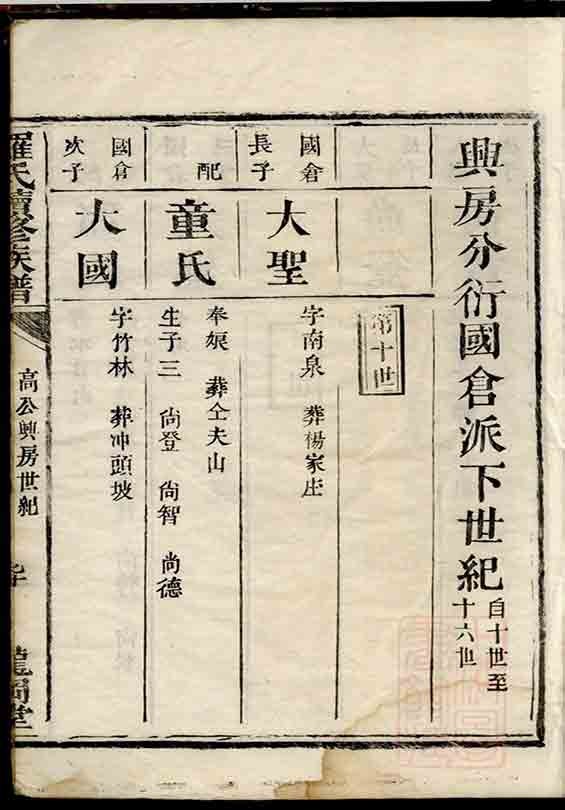 興房分衍國倉派下世紀 自十世至十六世
第十世
國倉長子
大聖
字南泉 葬楊家庄
配
童氏
奉娘 葬仝夫山
生子三 尚登 尚智 尚德
國倉次子
大國
字竹林 葬冲頭坡
羅氏續修族譜
高公興房世紀